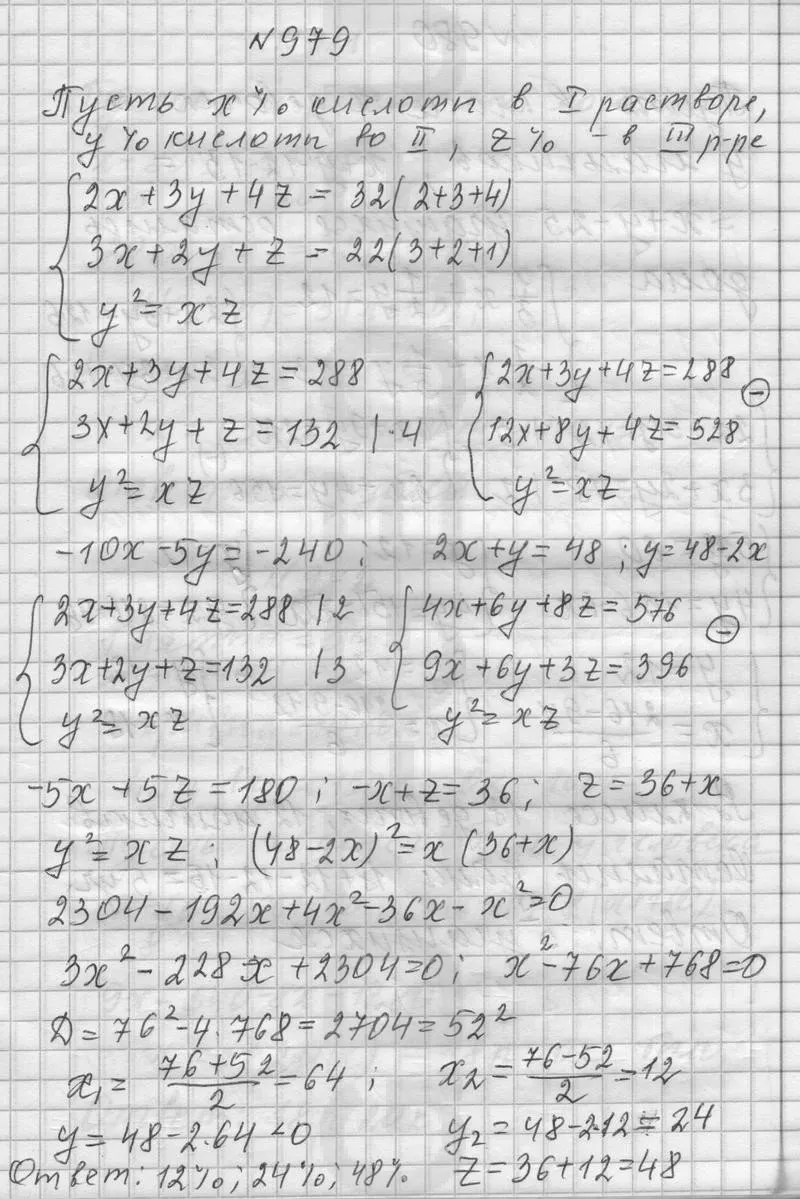 №979
Пусть x% кислоты в I растворе,
y% кислоты во II, z% - в III р-ре
2x+3y+4z = 32(2+3+4)
3x+2y+z = 22(3+2+1)
y²= xz
2x+3y+4z=288
3x+2y+z=132 |·4
y²=xz
2x+3y+4z=288
12x+8y+4z=528
y²=xz
-10x-5y=-240; 2x+y=48; y=48-2x
2x+3y+4z=288 |2
3x+2y+z=132 |3
y²=xz
4x+6y+8z=576
9x+6y+3z=396
y²=xz
-5x+5z=180; -x+z=36; z=36+x
y²=xz; (48-2x)²=x(36+x)
2304-192x+4x²-36x-x²=0
3x²-228x+2304=0; x²-76x+768=0
Д=76²-4·768=2704=52²
x₁= (76+52)/2 =64; x₂= (76-52)/2 =12
y=48-2·64<0 y₂=48-2·12=24
Ответ: 12%; 24%; 48%. z=36+12=48